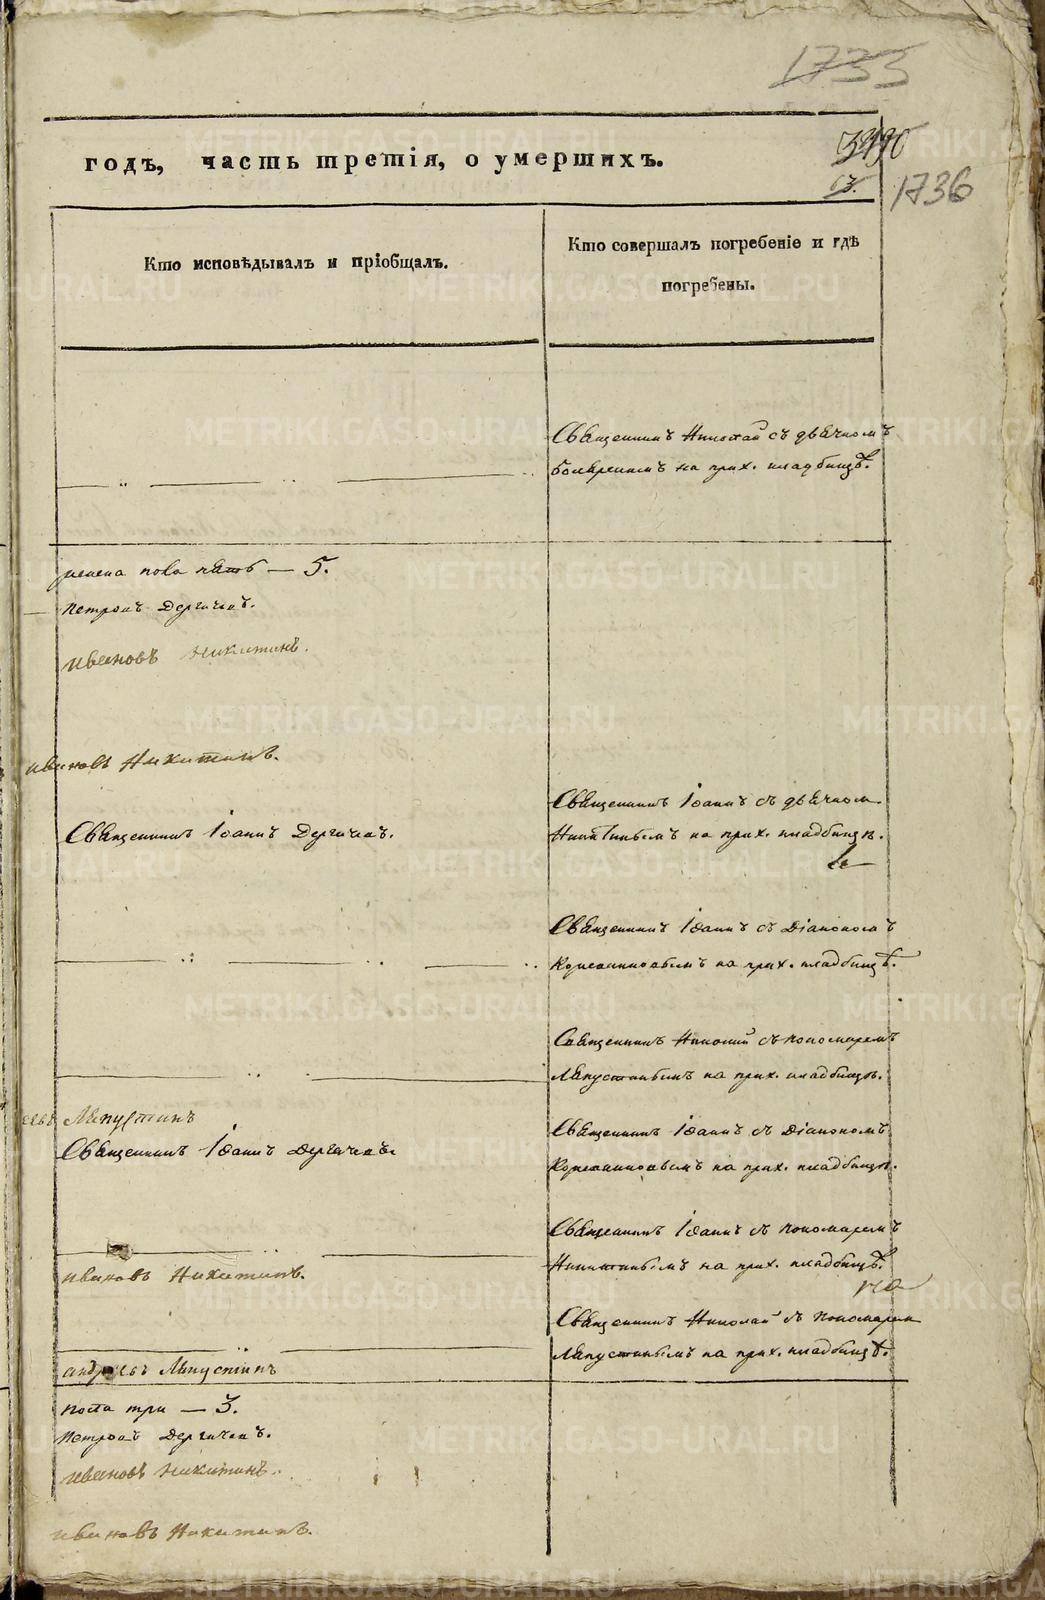 1735
годъ, часть третія, о умершихъ.
1736
Кто исповѣдывалъ и пріобщалъ.
Кто совершалъ погребеніе и гдѣ
погребены.
Священникъ Николай съ дьячкомъ
на прих. кладбищѣ.
пола пять — 5.
Петровъ Дергачевъ.
Ивановъ Никитинъ.
Ивановъ Никитинъ.
Священникъ Іоаннъ съ дьячком
Священникъ Іоаннъ Дергачевъ.
Никитинымъ на прих. кладбищѣ.
Священникъ Іоаннъ съ Діакономъ
на прих. кладбищѣ.
Священникъ Николай съ пономаремъ
Ляпустинымъ на прих. кладбищѣ.
Ляпустинъ
Священникъ Іоаннъ съ Діакономъ
Священникъ Іоаннъ Дергачевъ
на прих. кладбищѣ.
Священникъ Іоаннъ съ пономаремъ
Никитинымъ на прих. кладбищѣ.
Ивановъ Никитинъ.
Священникъ Николай съ пономарем
Ляпустинымъ на прих. кладбищѣ.
Ляпустинъ
пола три — 3.
Петровъ Дергачевъ.
Ивановъ Никитинъ.
Ивановъ Никитинъ.
METRIKI.GASO-URAL.RU